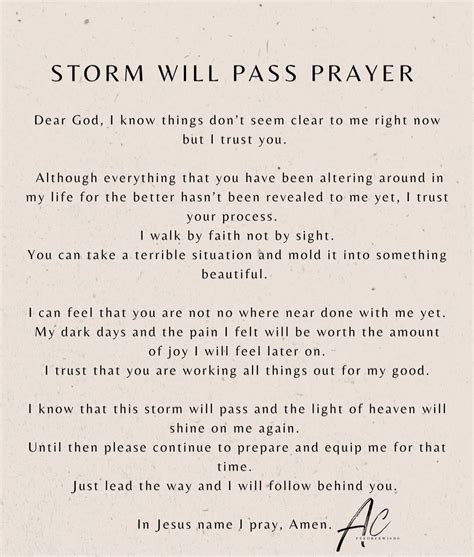 STORM WILL PASS PRAYER
Dear God, I know things don't seem clear to me right now
but I trust you.
Although everything that you have been altering around in
my life for the better hasn't been revealed to me yet, I trust
your process.
I walk by faith not by sight.
You can take a terrible situation and mold it into something
beautiful.
I can feel that you are not no where near done with me yet.
My dark days and the pain I felt will be worth the amount
of joy I will feel later on.
I trust that you are working all things out for my good.
I know that this storm will pass and the light of heaven will
shine on me again.
Until then please continue to prepare and equip me for that
time.
Just lead the way and I will follow behind you.
In Jesus name I pray, Amen.
AC